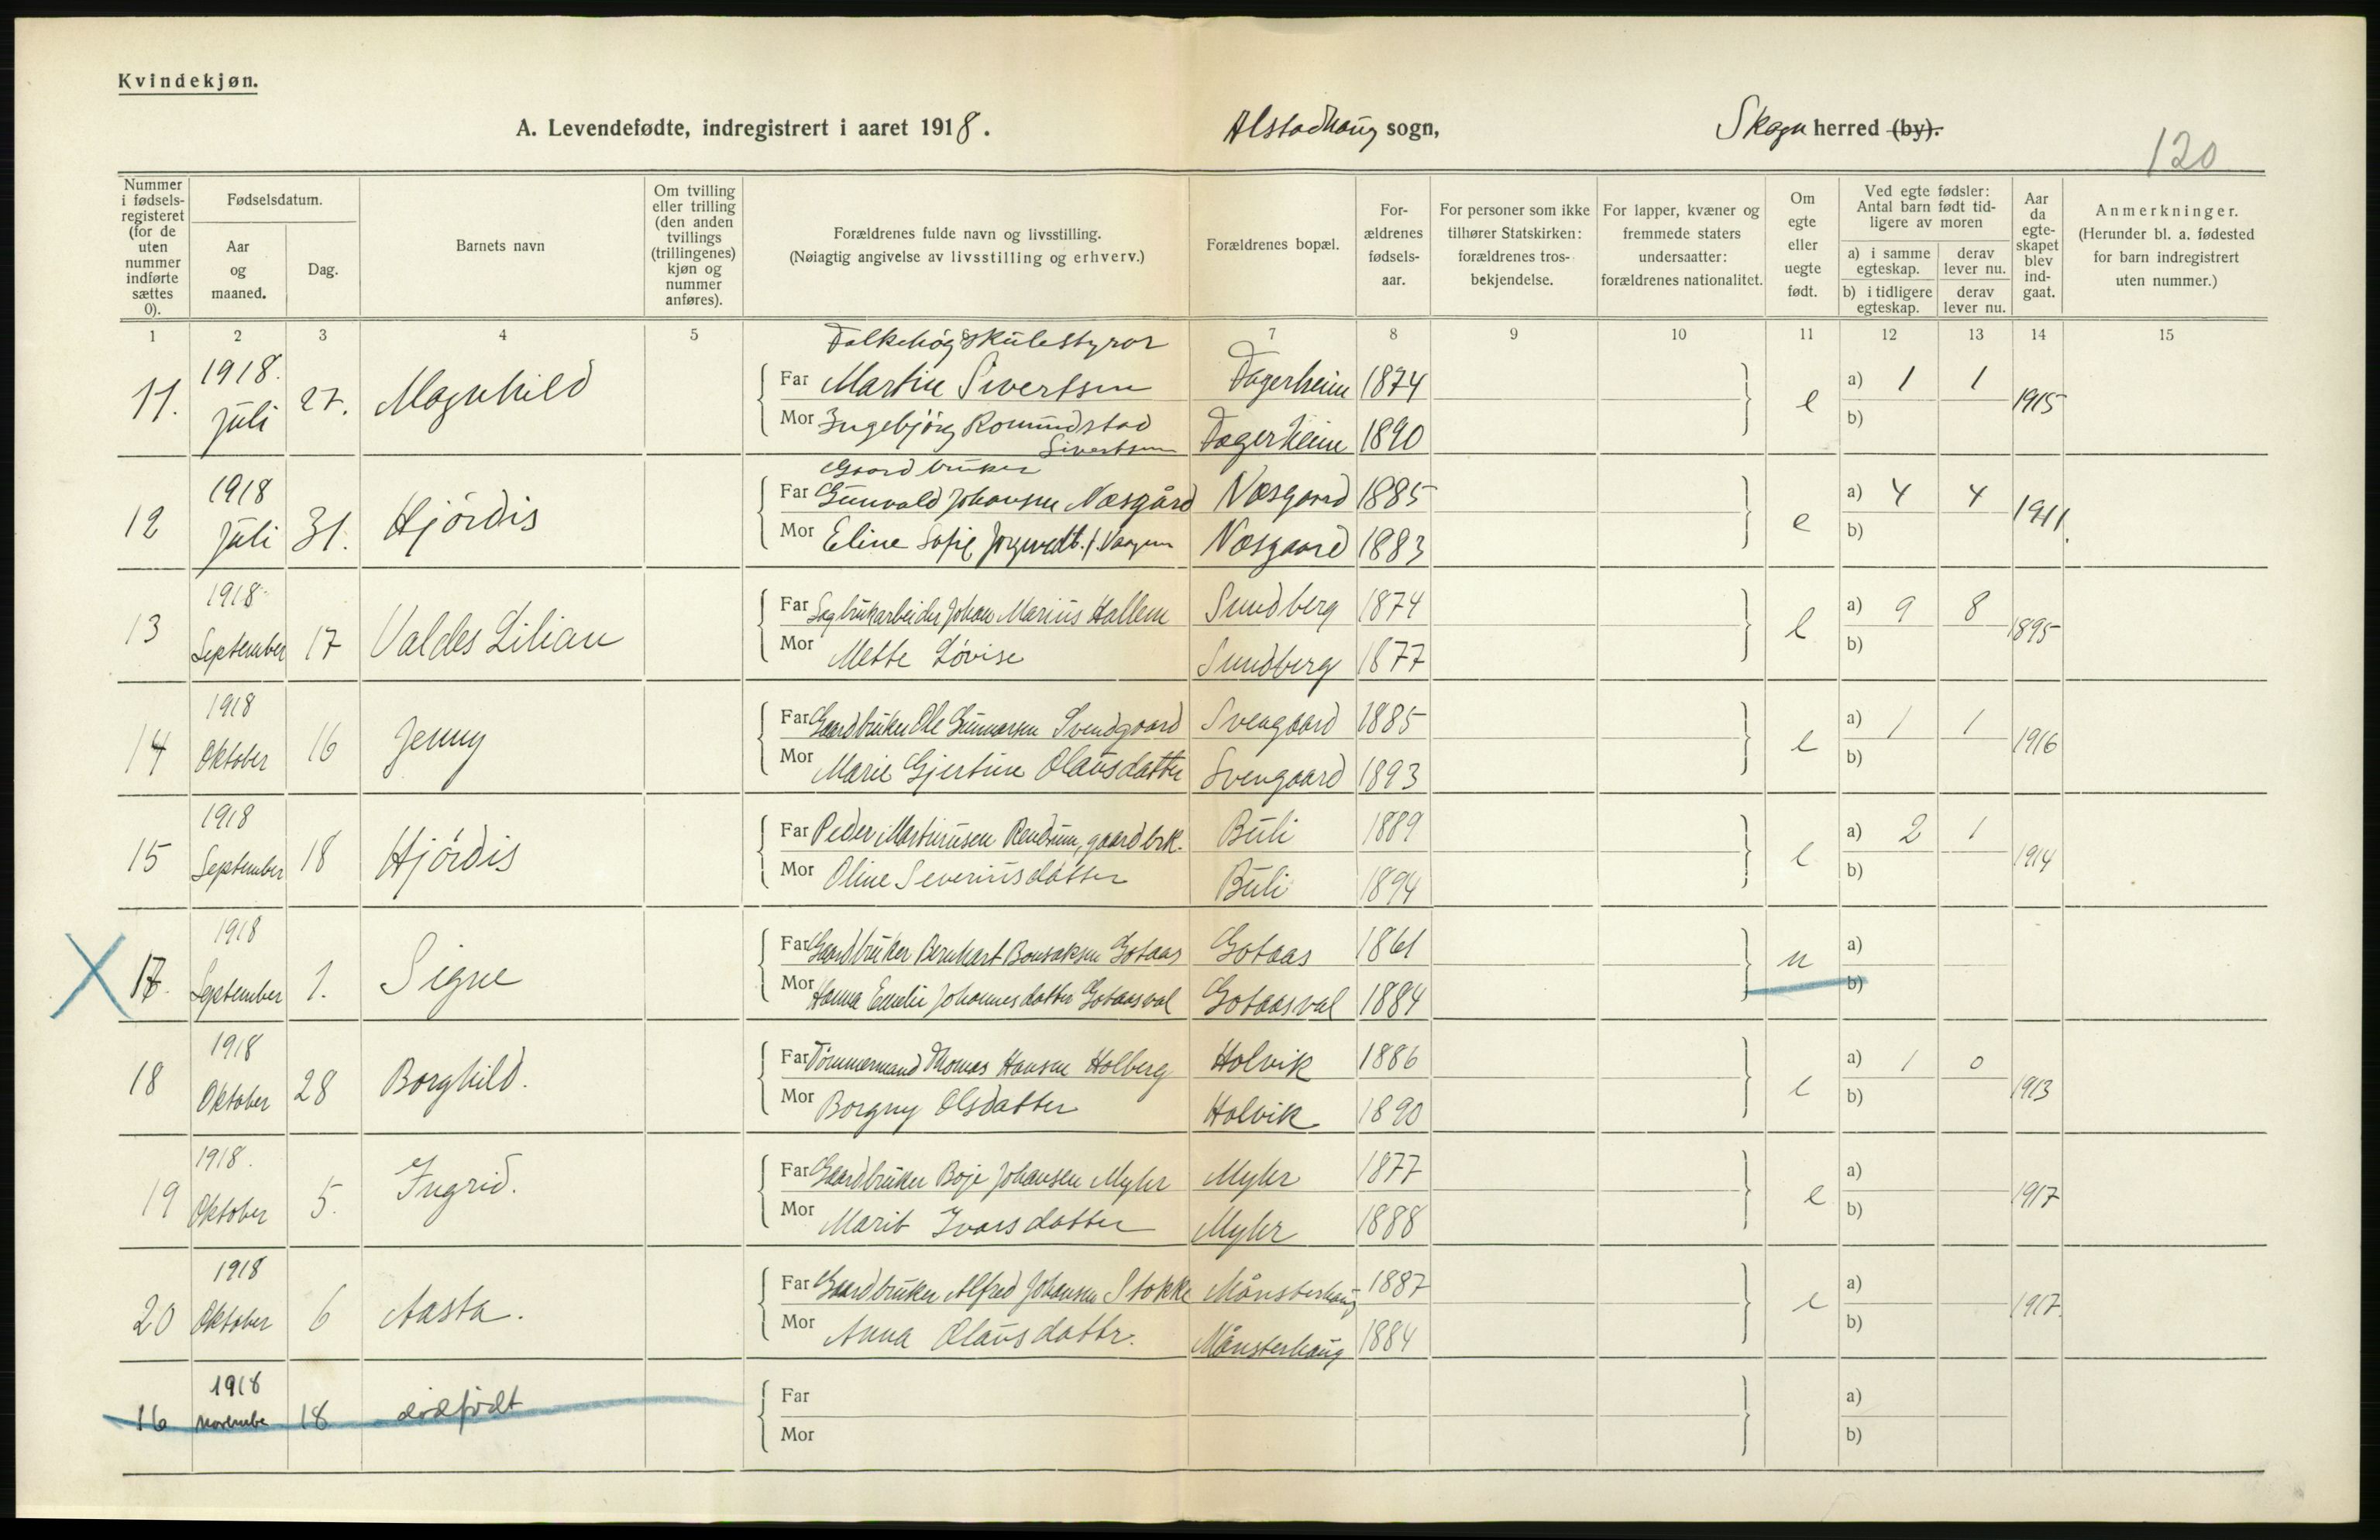 Kvindekjøn.
A. Levendefødte, indregistrert i aaret 1918. Alstadhaug sogn, Skogn herred (by).
120
Nummer i fødselsregisteret (for de uten nummer indførte sættes 0).
Fødselsdatum.
Aar og maaned.
Dag.
Barnets navn
Om tvilling eller trilling (den anden tvillings (trillingenes) kjøn og nummer anføres).
Forældrenes fulde navn og livsstilling.
(Nøiagtig angivelse av livsstilling og erhverv.)
Forældrenes bopæl.
Forældrenes fødselsaar.
For personer som ikke tilhører Statskirken: forældrenes trosbekjendelse.
For lapper, kvæner og fremmede staters undersaatter: forældrenes nationalitet.
Om egte eller uegte født.
Ved egte fødsler: Antal barn født tidligere av moren
a) i samme egteskap. derav lever nu.
b) i tidligere egteskap. derav lever nu.
Aar da egteskapet blev indgaat.
Anmerkninger.
(Herunder bl. a. fødested for barn indregistrert uten nummer.)
1 2 3 4 5 6 7 8 9 10 11 12 13 14 15
Folkehøgskulestyrar
11. 1918. Juli 27. Magnhild
Far Martin Sivertsen Fagerheim 1874 e a) 1 1 1915
Mor Ingebjörg Romundstad Sivertsen Fagerheim 1890 b)
Gaardbruker
12 1918 Juli 31. Hjördis
Far Gunvald Johansen Næsgård Næsgaard 1885 e a) 4 4 1911.
Mor Eline Sofie Næsgaard 1883 b)
13 1918 September 17 Valdes Lilian
Far Sagbrukarbeider Johan Marius Hallem Sundberg 1874 e a) 9 8 1895
Mor Mette Lovise Sundberg 1877 b)
14 1918 Oktober 16 Jenny
Far Gaardbruker Ole Gunnarsen Svendgaard Svengaard 1885 e a) 1 1 1916
Mor Marie Gjertine Olausdatter Svengaard 1893 b)
15 1918 September 18 Hjördis
Far Peder Martinusen Rendum, gaardbrk. Buli 1889 e a) 2 1 1914
Mor Oline Severinsdatter Buli 1894 b)
17. 1918 September 1. Signe
Far Gaardbruker Bernhart Bonsaksen Gotaas Gotaas 1861 u a)
Mor Hanna Emelie Johannesdatter Gotaasval Gotaasval 1884 b)
18 1918 Oktober 28 Borghild.
Far Tømmermand Thomas Hansen Holberg Holvik 1886 e a) 1 0 1913
Mor Borgny Olsdatter Holvik 1890 b)
19 1918. Oktober 5. Ingrid.
Far Gaardbruker Boje Johansen Myhr Myhr 1877 e a) 1917
Mor Marit Ivarsdatter Myhr 1888 b)
20 1918 Oktober 6 Aasta.
Far Gaardbruker Alfred Johansen Stokke Månsterhaug 1887 e a) 1917.
Mor Anna Olausdattr. Månsterhaug 1884 b)
16 1918 novembe 18 dødfödt
Far a)
Mor b)